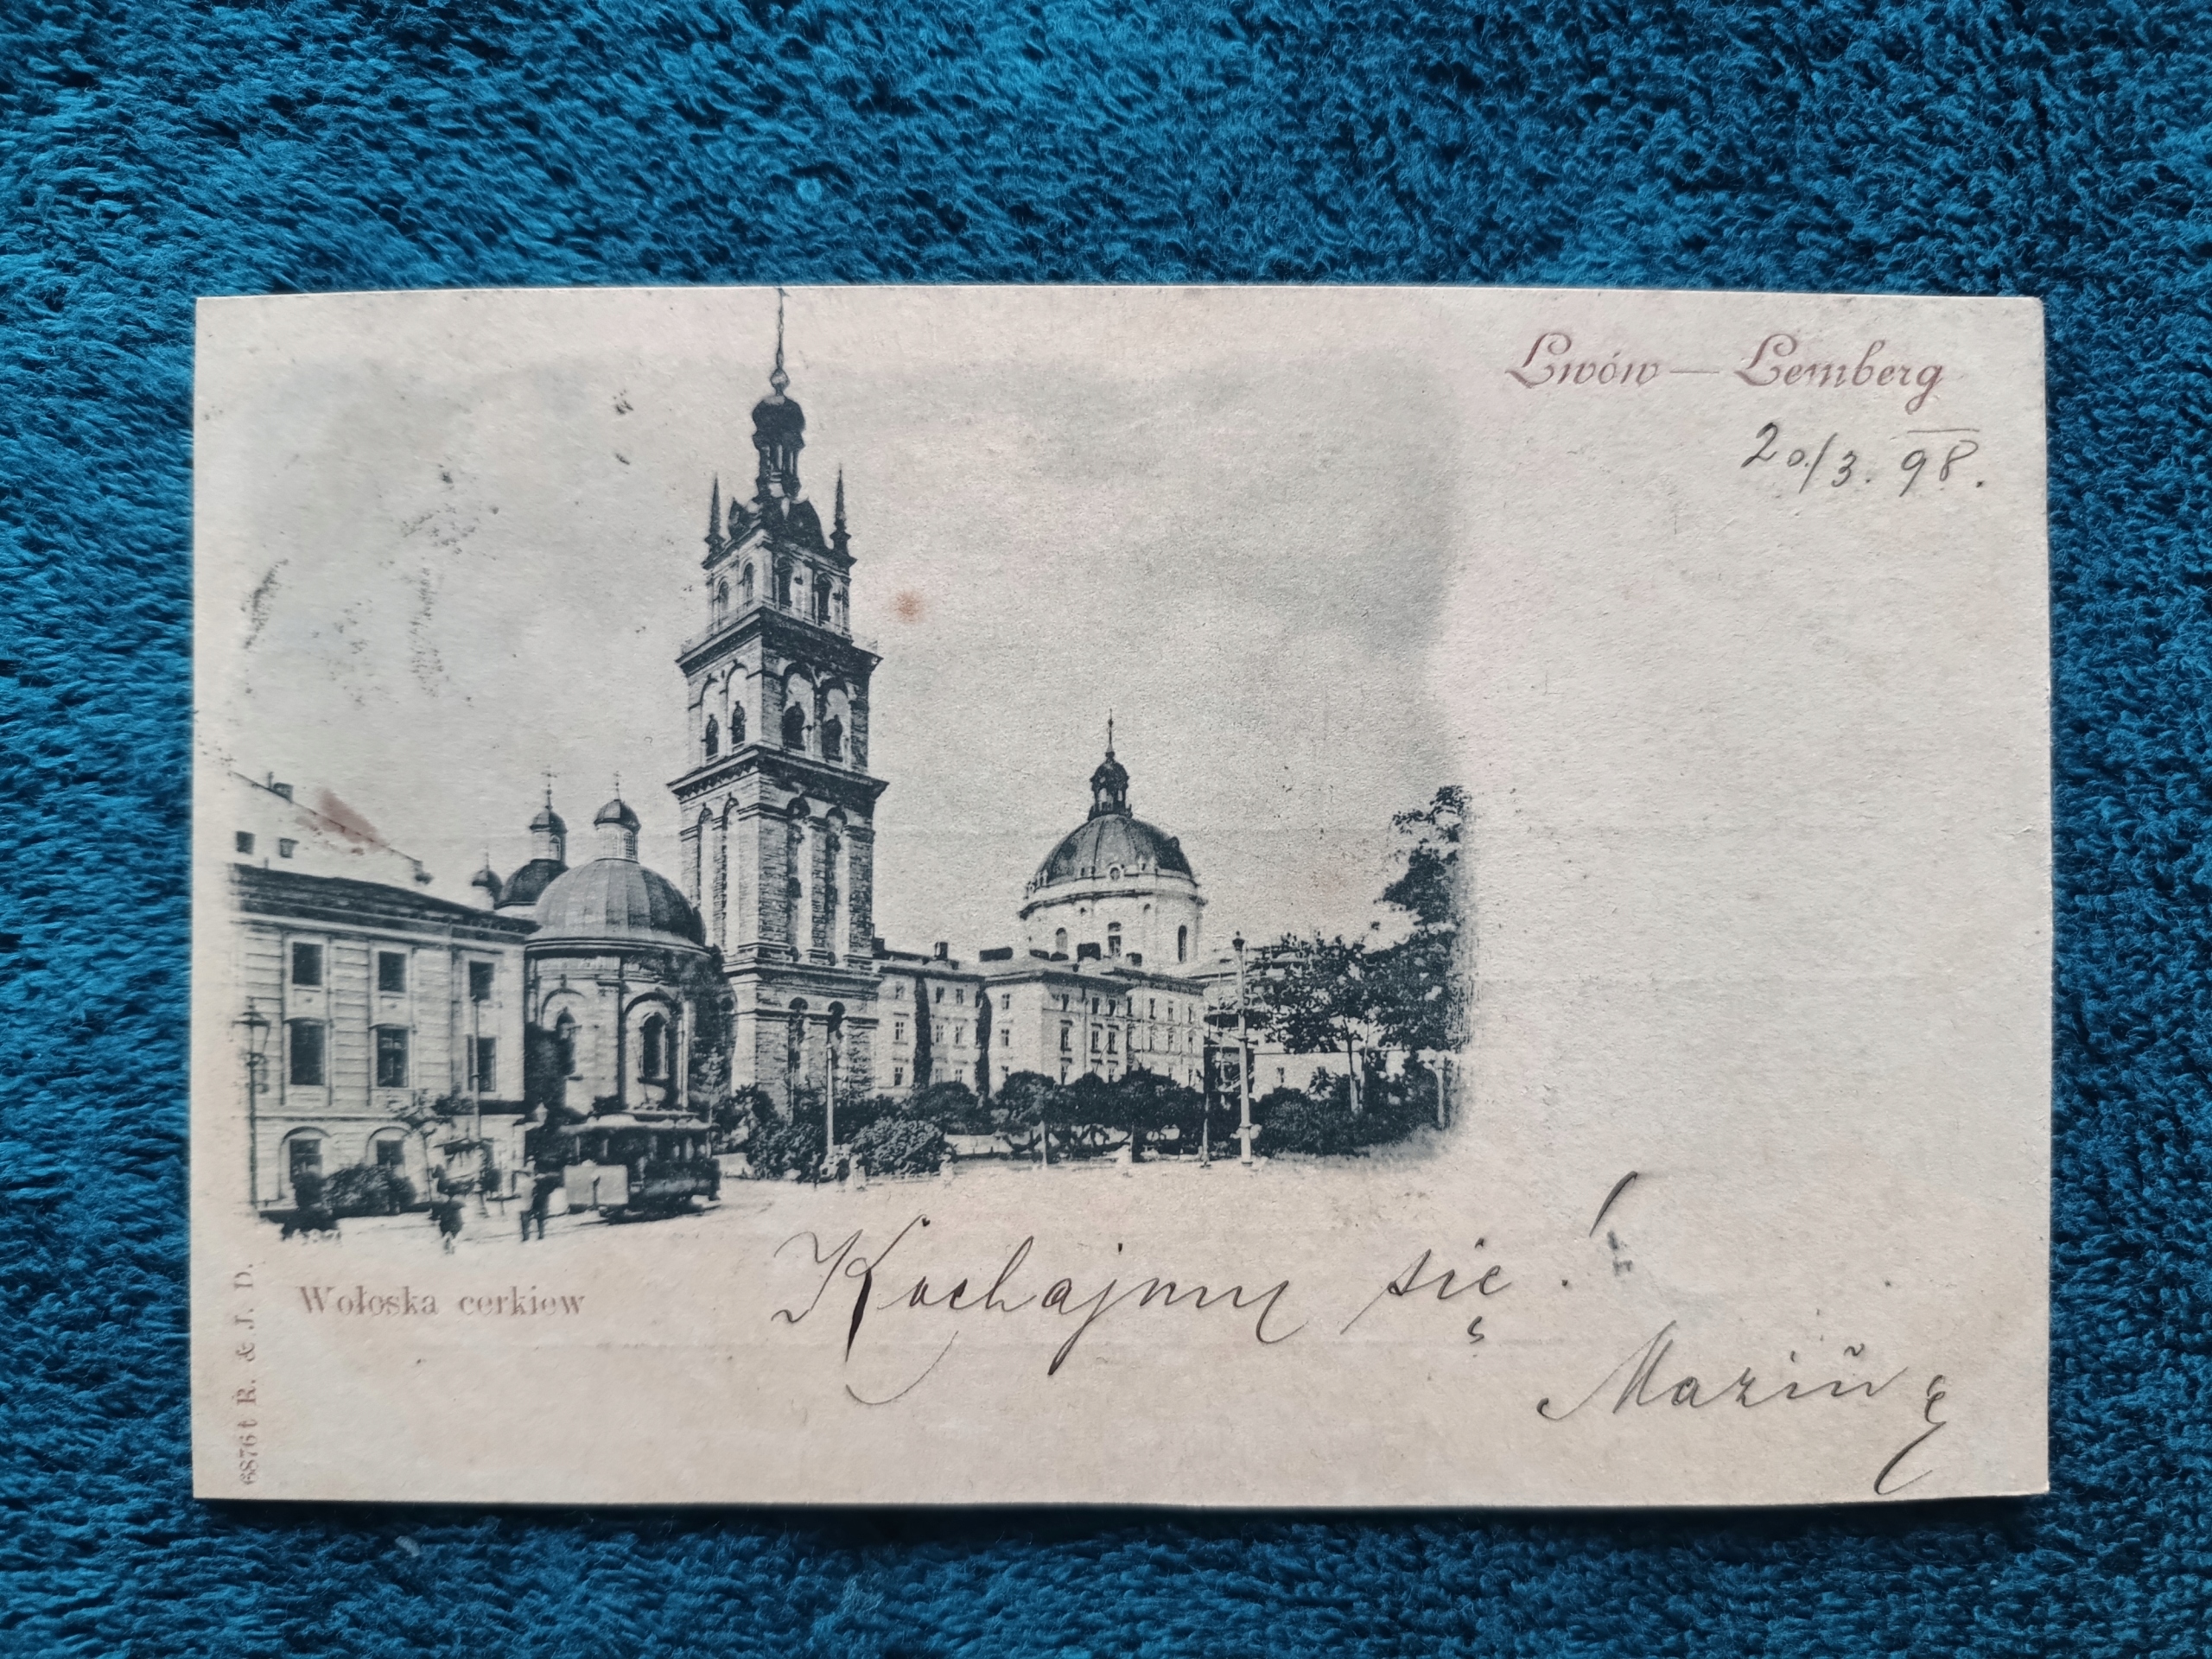 Lwów — Lemberg
20/3. 98.
Wołoska cerkiew
Kochajmy się!
6876 t R. & J. D.